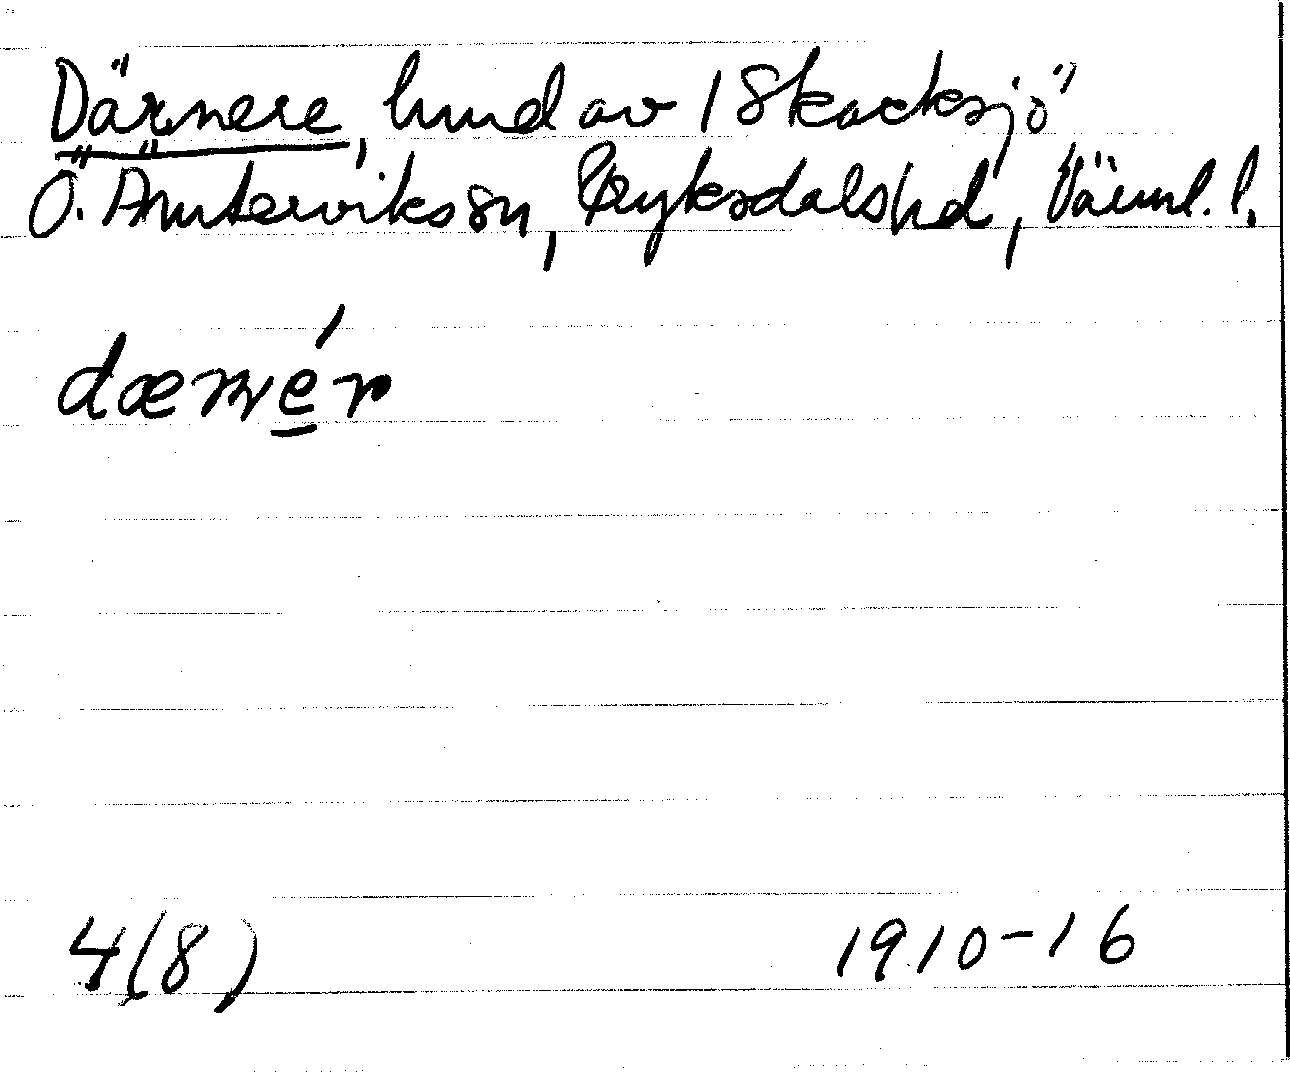 Därnere, hmd av 1 Skacksjö
Ö. Ämtervikssn, Fryksdalshd, Värml. l.
dænnér
4(8) 1910-16